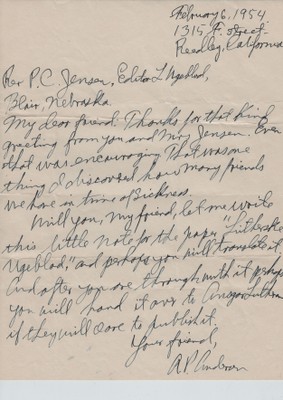 February 6, 1954
1315 F. Street
Reedley, California
Rev P.C. Jensen, Editor L Ugeblad,
Blair, Nebraska
My dear friend: Thanks for that kind
greeting from you and Mrs Jensen. Even
that was encouraging. That was one
thing I discovered how many friends
we have in time of Sickness.
Will you, my friend, let me write
this little note for the paper "Lutherske
Ugeblad," and perhaps you will translate it,
And after you are through with it perhaps
you will hand it over to Ansgar Lutheran
if they will care to publish it
Your friend,
A.P. Anderson